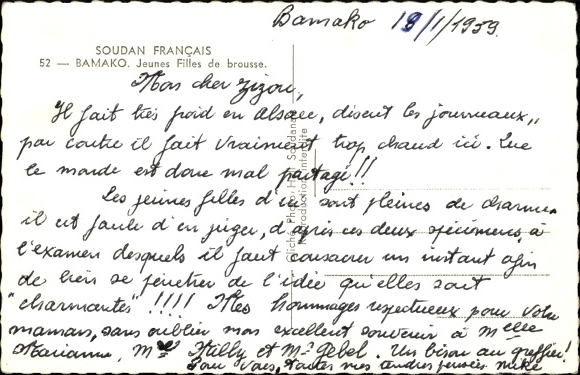 Bamako 18/1/1959.
SOUDAN FRANÇAIS
52 — BAMAKO. Jeunes Filles de brousse.
Mon cher Zizou,
Il fait très froid en Alsace, disent les journeaux,,
par contre il fait vraiment trop chaud ici. Que
le monde est donc mal partagé!!
Les jeunes filles d'ici sont pleines de charme.
il est facile d'en juger, d'après ces deux spécimens, à
l'examen desquels il faut consacrer un instant afin
de bien se pénétrer de l'idée qu'elles sont
"charmantes" !!!! Mes hommages respectueux pour votre
maman, sans oublier mon excellent souvenir à Melle
Marianne, Mr Killy et Mr Gebel. Un bison au greffier!
Pour vous, toutes mes tendres pensées Mike
Cliché Photo Hall Soudanais
Reproduction Interdite